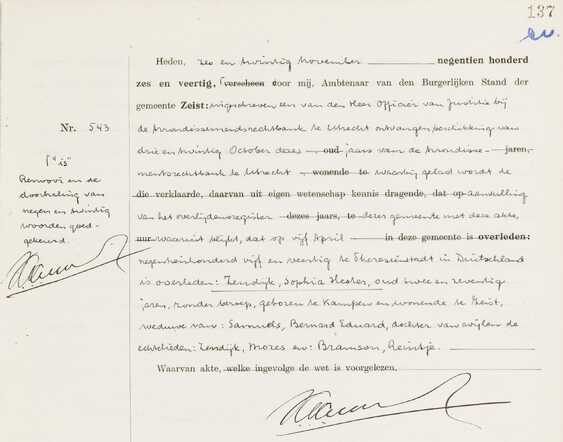 137
Heden, zes en twintig November negentien honderd
zes en veertig, ⌈verscheen door mij, Ambtenaar van den Burgerlijken Stand der
gemeente Zeist: ingeschreven een van den Heer Officier van Justitie bij
Nr. 543
de Arrondissementsrechtbank te Utrecht ontvangen beschikking van
drie en twintig October dezes oud jaars van de Arrondisse- jaren,
⌈"is"
mentsrechtbank te Utrecht wonende te waarbij gelast wordt de
Renvooi en de
doorhaling van
negen en twintig
woorden goed-
gekeurd.
die verklaarde, daarvan uit eigen wetenschap kennis dragende, dat op aanvulling
van het overlijdensregister dezes jaars, te dezer gemeente met deze akte,
uur waaruit blijkt, dat op vijf April in deze gemeente is overleden:
negentienhonderd vijf en veertig te Theresienstadt in Duitschland
is overleden: Zendijk, Sophia Hester, oud twee en zeventig
jaren, zonder beroep, geboren te Kampen en wonende te Zeist,
weduwe van: Samuels, Bernard Eduard, dochter van wijlen de
echtelieden: Zendijk, Mozes en: Bramson, Reintje.
Waarvan akte, welke ingevolge de wet is voorgelezen.